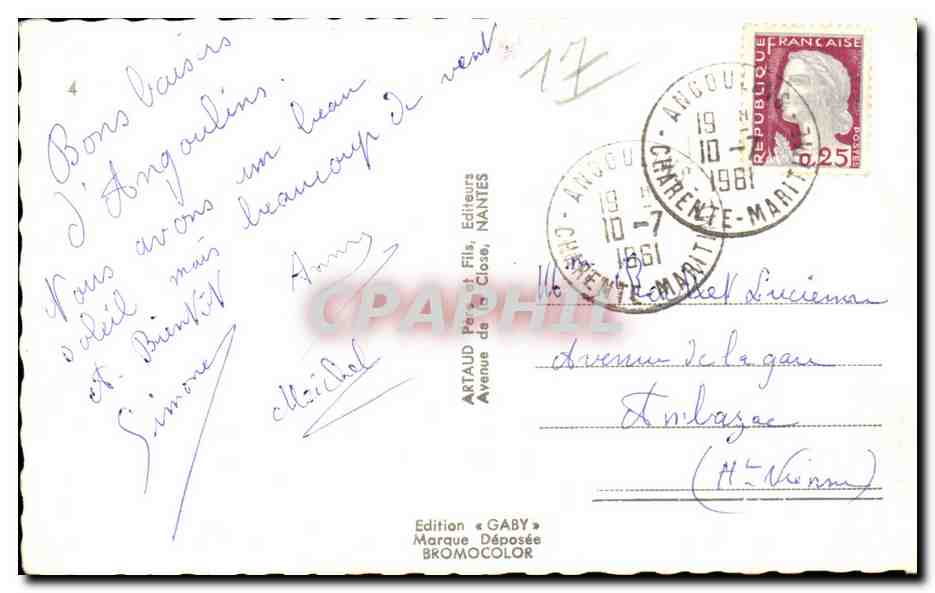 4
Bons baisers
d'Angoulins.
Nous avons un beau
soleil mais beaucoup de vent
A. Bientôt
Simone
Anny
Michel
17
ARTAUD Père et Fils, Editeurs
Avenue de la Close, NANTES
REPUBLIQUE FRANÇAISE
POSTES
0,25
19
10-7
1961
CHARENTE-MARITIME
19
10-7
1961
CHARENTE-MARITIME
CPARPHIL
Lucienne
Avenue de la gare
Ambazac
(Hte Vienne)
Edition « GABY »
Marque Déposée
BROMOCOLOR